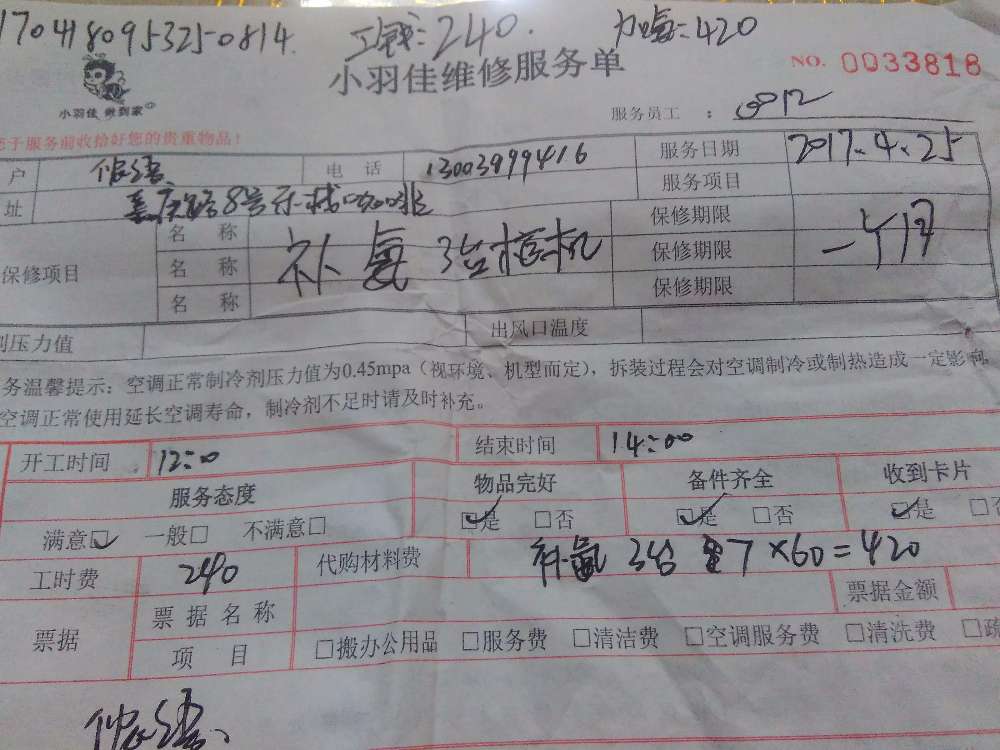 170418095325-0814. 工钱:240. 加氟:420
小羽佳维修服务单 NO. 0033818
小羽佳 做到家
服务员工 : 0012
于服务前收拾好您的贵重物品!
户 电 话 13003999416 服务日期 2017.4.25
址 8号 服务项目
保修项目 名 称 补氟 3台柜机 保修期限 一个月
名 称 保修期限
名 称 保修期限
剂压力值 出风口温度
务温馨提示:空调正常制冷剂压力值为0.45mpa(视环境、机型而定),拆装过程会对空调制冷或制热造成一定影响
空调正常使用延长空调寿命,制冷剂不足时请及时补充。
开工时间 12:00 结束时间 14:00
服务态度 物品完好 备件齐全 收到卡片
满意☑ 一般□ 不满意□ ☑是 □否 ☑是 □否 ☑是 □否
工时费 240 代购材料费 补氟 3台 7×60=420
票据 票据名称 票据金额
项 目 □搬办公用品 □服务费 □清洁费 □空调服务费 □清洗费 □疏